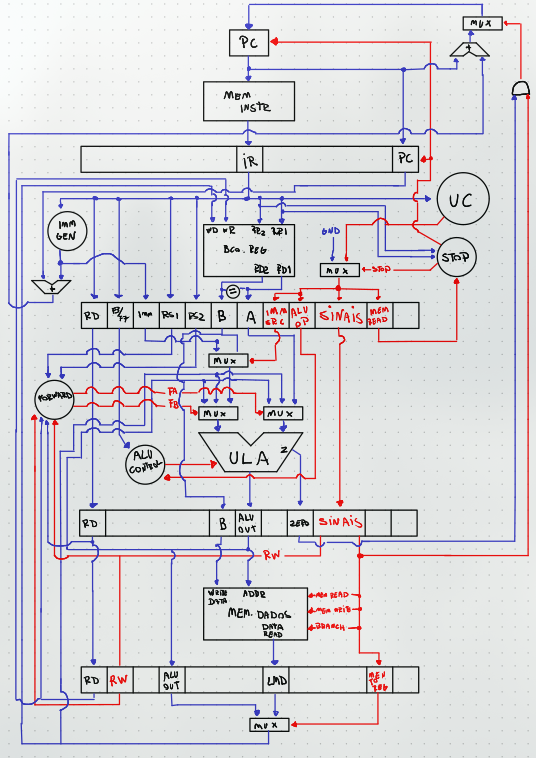 MUX
PC
+
MEM
INSTR
IR
PC
UC
IMM
GEN
WD WR RR2 RR1
BCO. REG
RD2 RD1
GND
MUX
STOP
STOP
+
=
RD
Imm
RS1
RS2
B
A
IMM
SRC
ALU
OP
SINAIS
MEM
READ
MUX
FORWARD
FA
FB
MUX
MUX
ULA
Z
ALU
CONTROL
RD
B
ALU
OUT
ZERO
SINAIS
RW
WRITE
DATA
ADDR
MEM. DADOS
DATA
READ
MEM READ
MEM WRITE
BRANCH
RD
RW
ALU
OUT
LMD
MEM
TO
REG
MUX